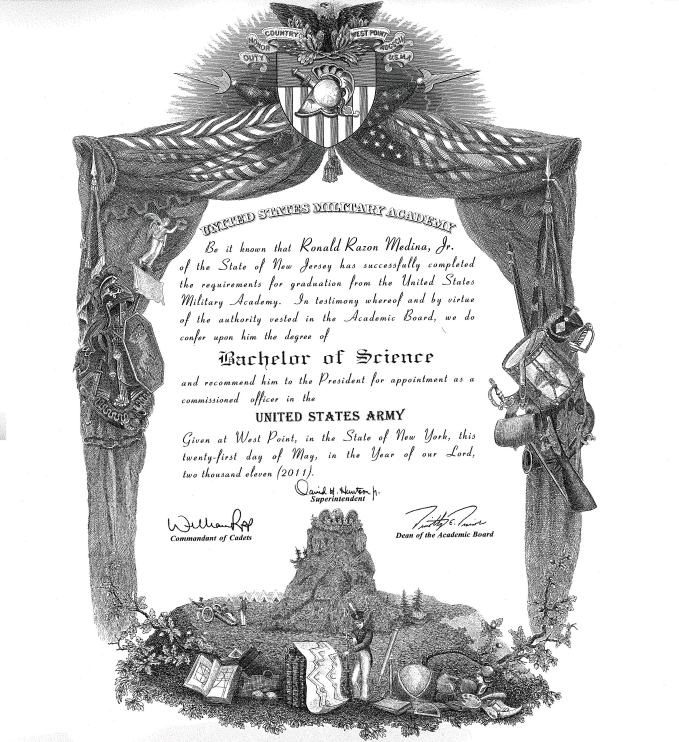 COUNTRY
WEST POINT
HONOR
MDCCCII
DUTY
U.S.M.A.
UNITED STATES MILITARY ACADEMY
Be it known that Ronald Razon Medina, Jr.
of the State of New Jersey has successfully completed
the requirements for graduation from the United States
Military Academy. In testimony whereof and by virtue
of the authority vested in the Academic Board, we do
confer upon him the degree of
Bachelor of Science
and recommend him to the President for appointment as a
commissioned officer in the
UNITED STATES ARMY
Given at West Point, in the State of New York, this
twenty-first day of May, in the Year of our Lord,
two thousand eleven (2011).
Superintendent
Commandant of Cadets
Dean of the Academic Board